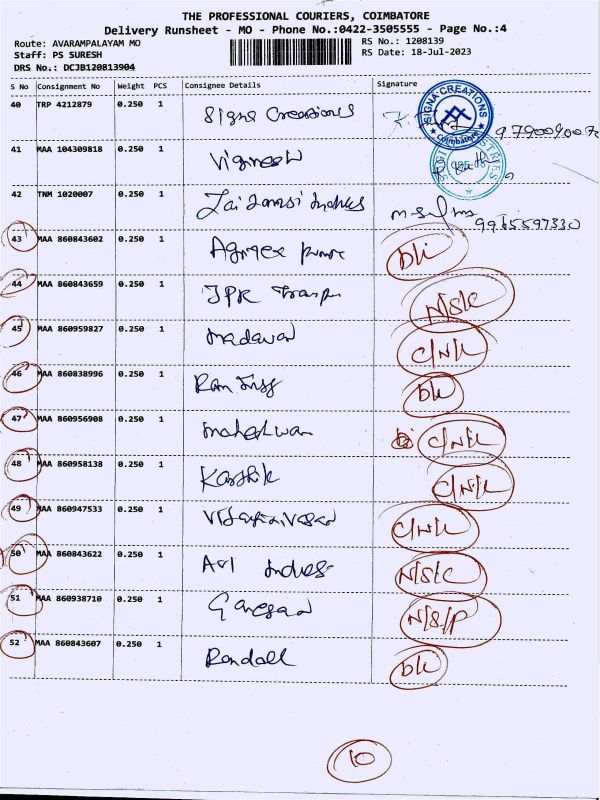 THE PROFESSIONAL COURIERS, COIMBATORE
Delivery Runsheet - MO - Phone No.:0422-3505555 - Page No.:4
Route: AVARAMPALAYAM MO RS No.: 1208139
Staff: PS SURESH RS Date: 18-Jul-2023
DRS No.: DCJB120813904
S No Consignment No Weight PCS Consignee Details Signature
40 TRP 4212879 0.250 1 Signa Creations
SIGNA CREATIONS Coimbatore
41 MAA 104309818 0.250 1 Vignesh
42 TNM 1020007 0.250 1 9965597330
43 MAA 860843602 0.250 1 DL
44 MAA 860843659 0.250 1 JPK N/S/C
45 MAA 860959827 0.250 1 Madavan C/N/L
46 MAA 860838996 0.250 1 Ram DL
47 MAA 860956908 0.250 1 Maheshwari C/N/L
48 MAA 860958138 0.250 1 Karthik C/N/L
49 MAA 860947533 0.250 1 C/N/L
50 MAA 860843622 0.250 1 N/S/C
51 MAA 860938710 0.250 1 Ganesan N/S/P
52 MAA 860843607 0.250 1 Randall DL
10